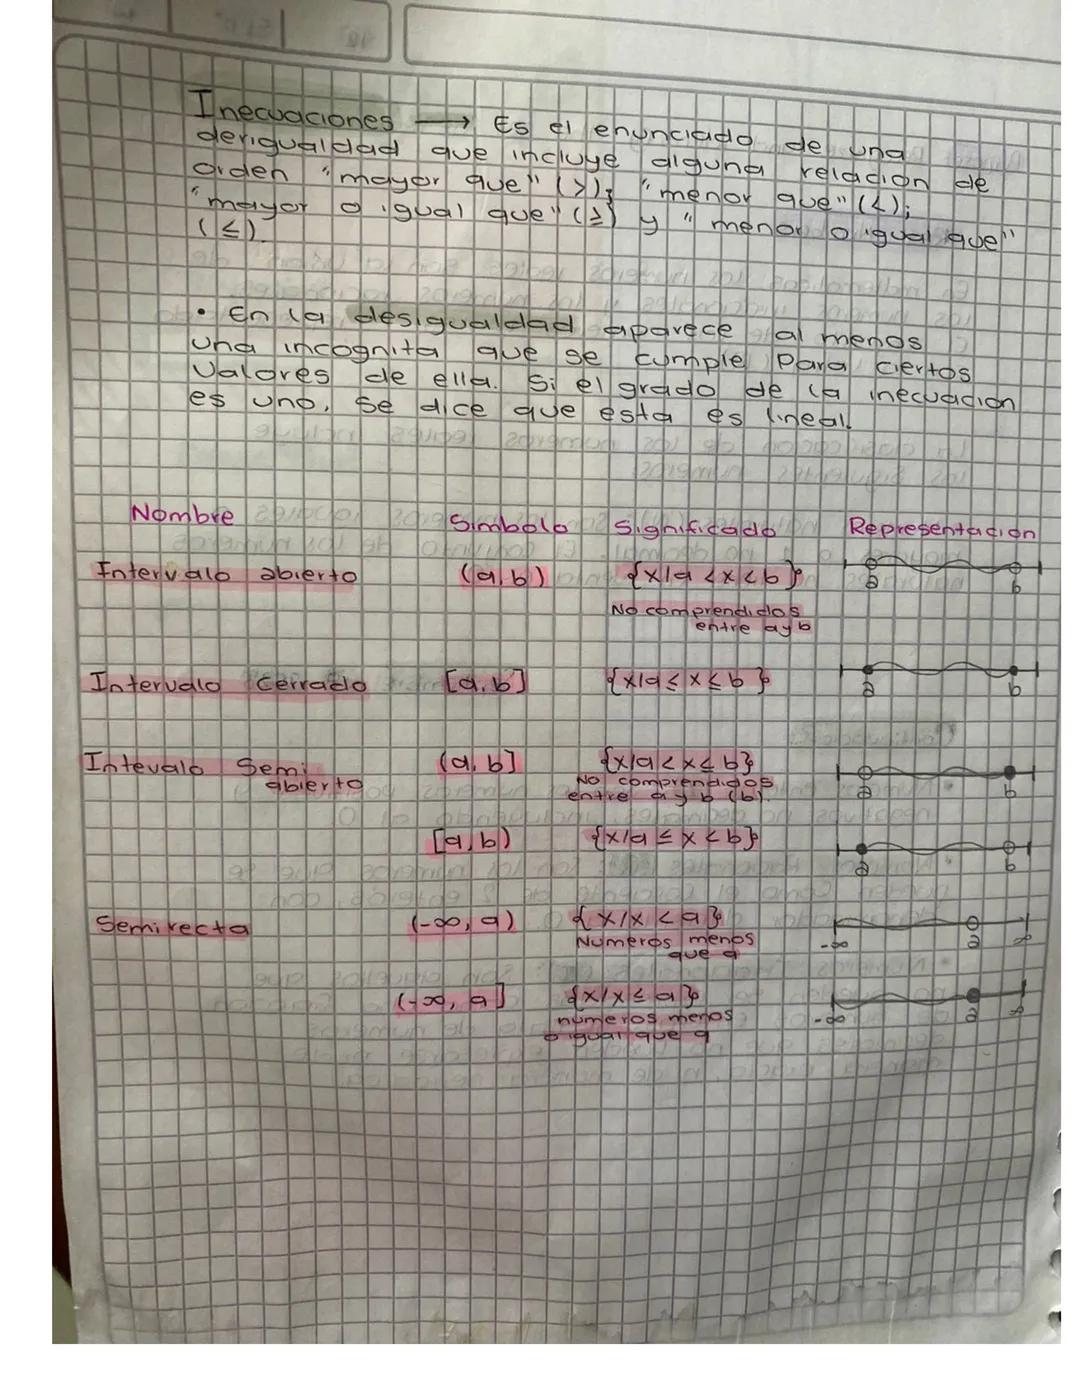 Inecuaciones → Es el enunciado de una
desigualdad que incluye alguna relacion de
orden "mayor que" (>); "menor que" (<);
"mayor o igual que" (≥) y "menor o igual que"
(≤).
• En la desigualdad aparece al menos
una incognita que se cumple para ciertos
valores de ella. Si el grado de la inecuacion
es uno, se dice que esta es lineal.
Nombre Simbolo Significado Representacion
Intervalo abierto (a,b) {x/a < x < b}
a b
No comprendidos
entre a y b
Intervalo cerrado [a,b] {x/a ≤ x ≤ b}
a b
Intevalo Semi (a,b] {x/a < x ≤ b}
abierto No comprendidos
entre a y b (b). a b
[a,b) {x/a ≤ x < b}
a b
Semirecta (-∞, a) {x/x < a}
Numeros menos -∞ a ∞
que a
(-∞, a] {x/x ≤ a}
numeros menos -∞ a ∞
o igual que a